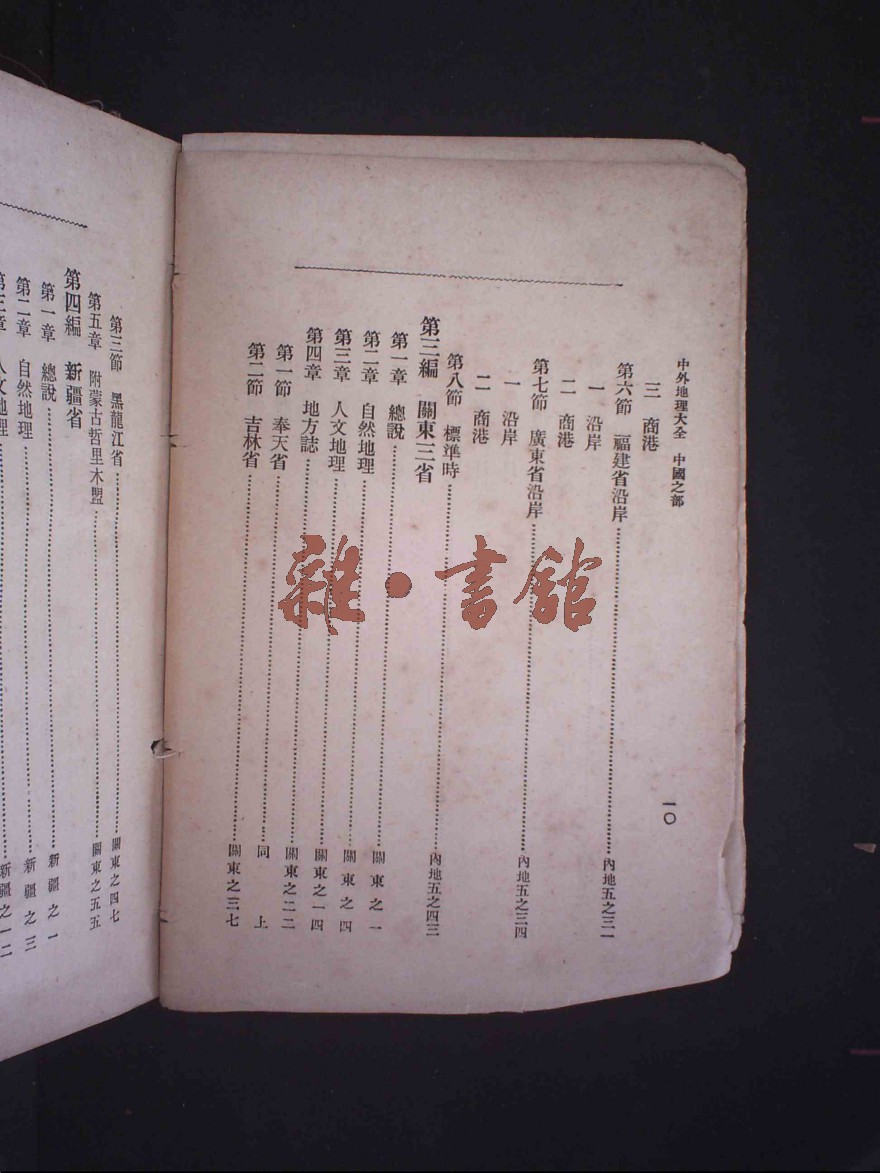 中外地理大全　中國之部　一〇
三　商港
第六節　福建省沿岸……內地五之三一
一　沿岸
二　商港
第七節　廣東省沿岸……內地五之三四
一　沿岸
二　商港
第八節　標準時……內地五之四三
第三編　關東三省
第一章　總說……關東之一
第二章　自然地理……關東之四
第三章　人文地理……關東之一四
第四章　地方誌……關東之二二
第一節　奉天省……同上
第二節　吉林省……關東之三七
第三節　黑龍江省……關東之四七
第五章　附蒙古哲里木盟……關東之五五
第四編　新疆省
第一章　總說……新疆之一
第二章　自然地理……新疆之三
第三章　人文地理……新疆之一二
雜·書館